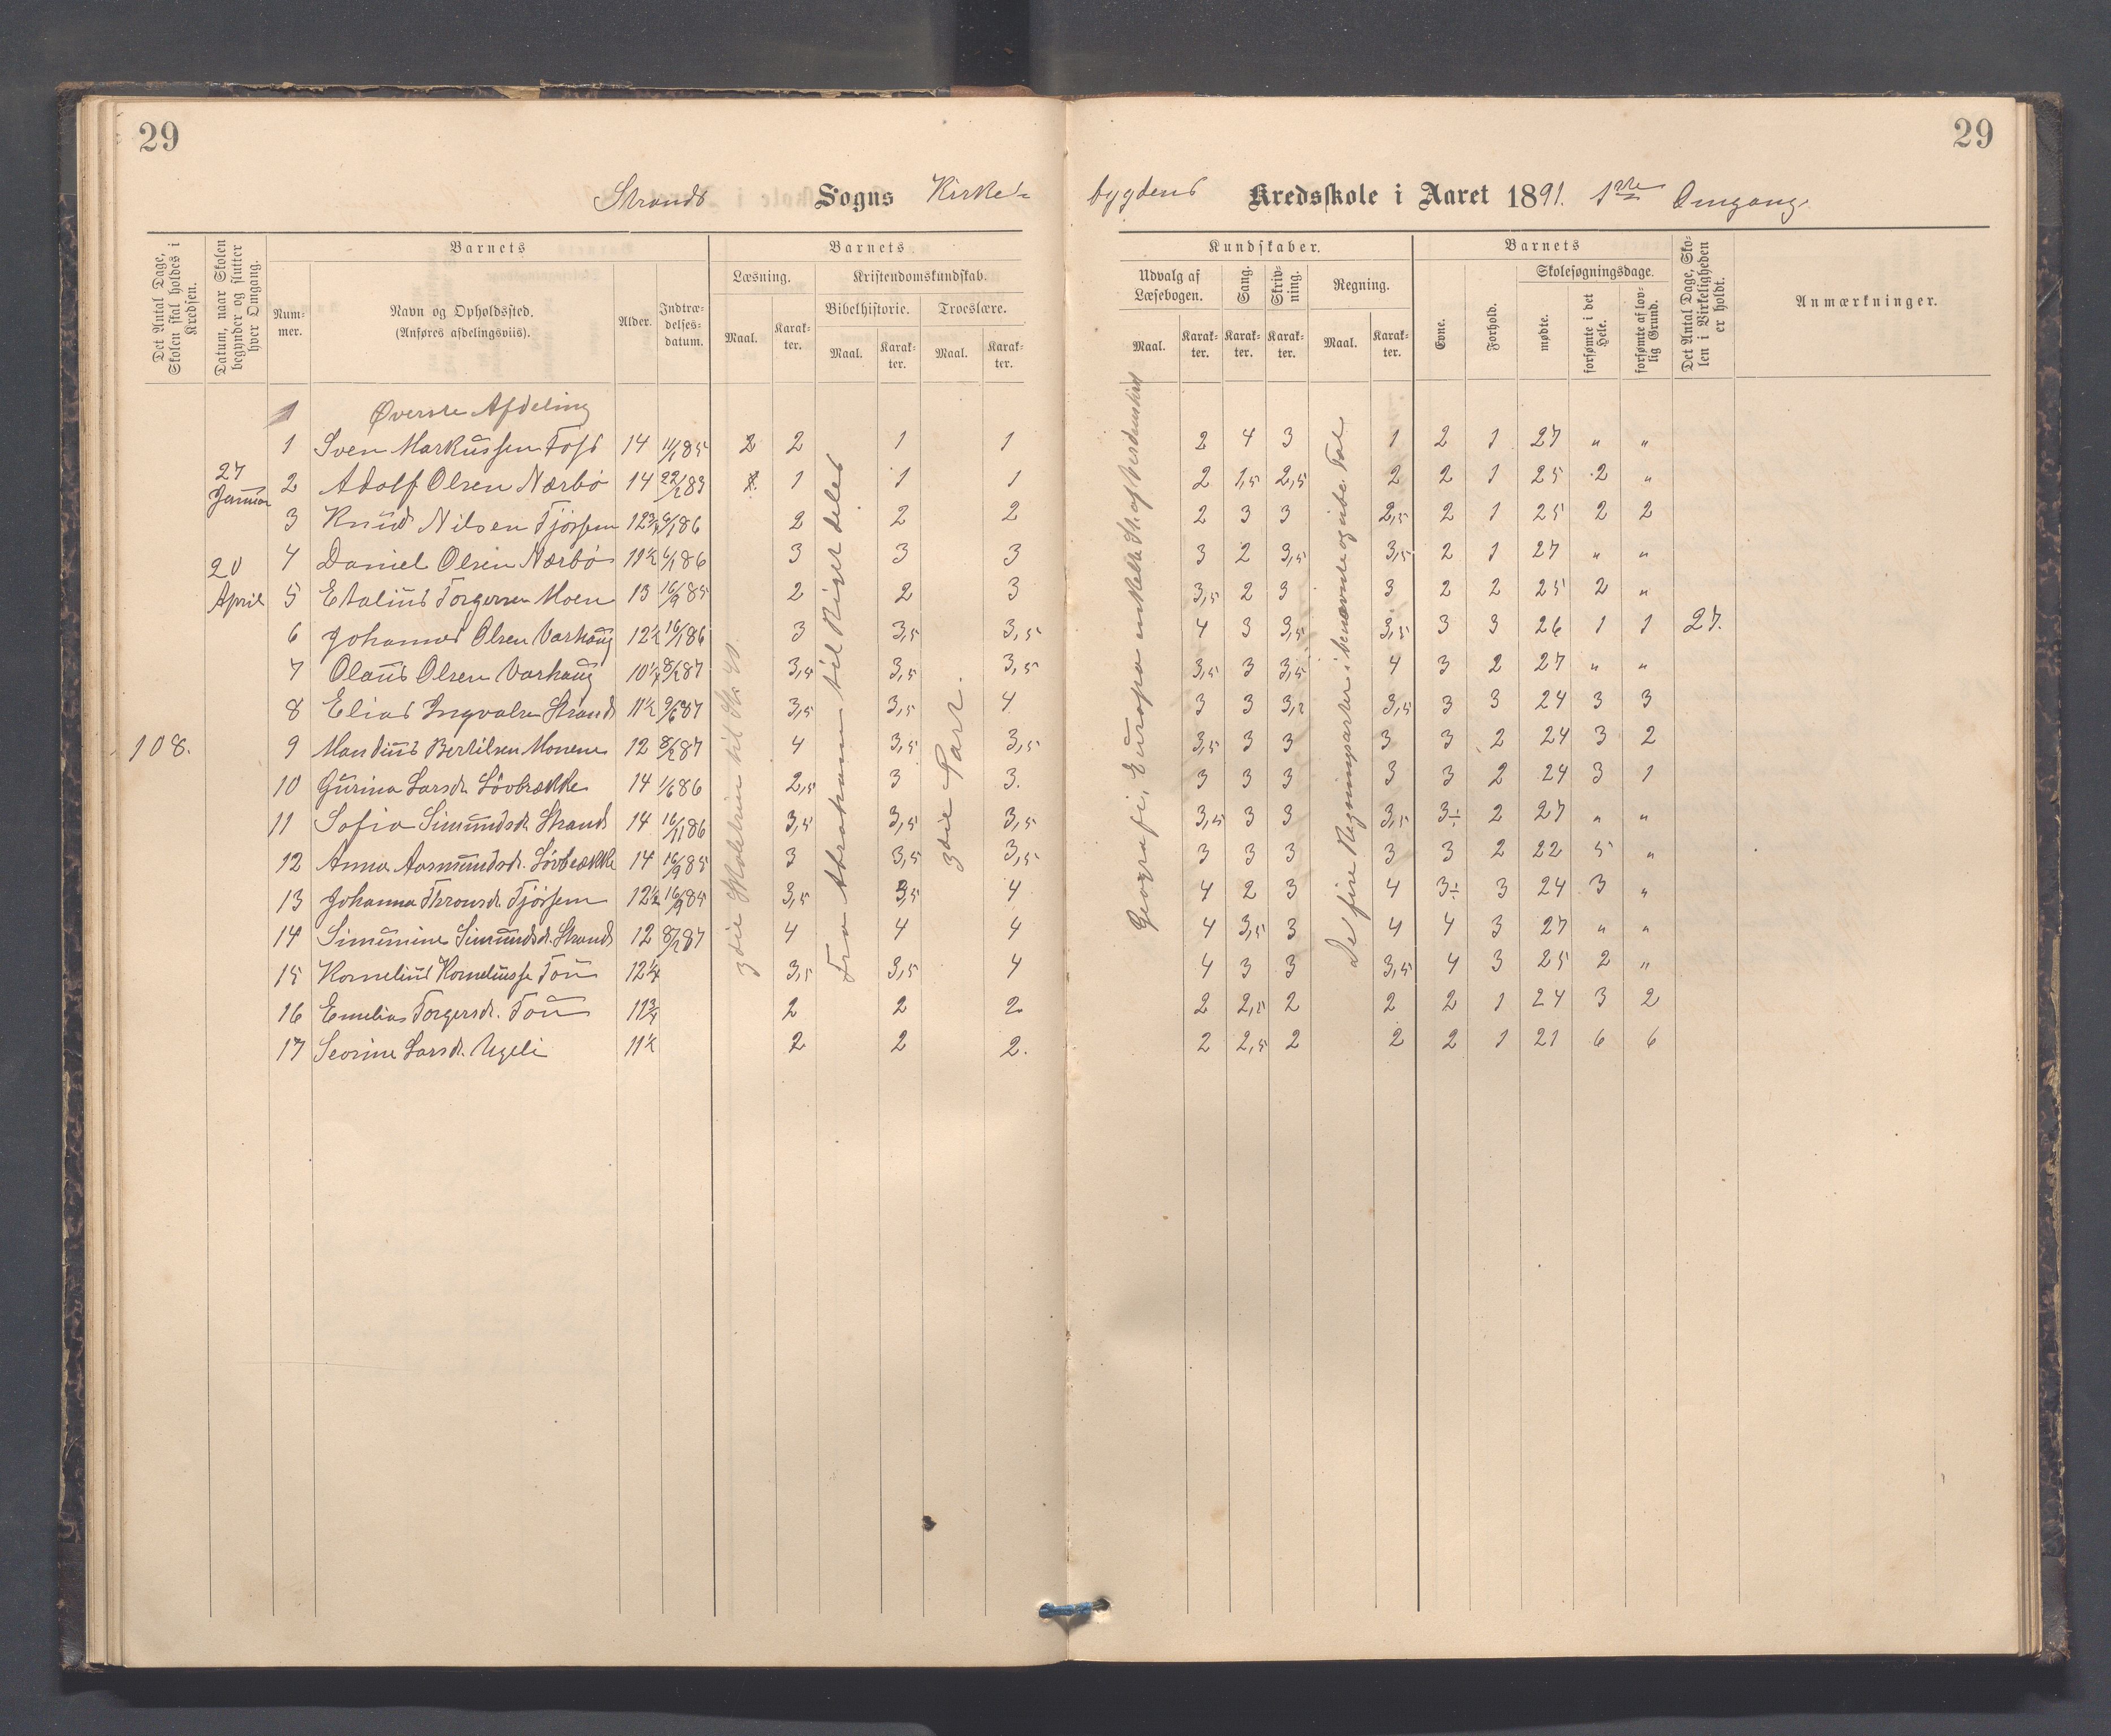 29
29
Strands Sogns Kirke-
bygdens Kredsskole i Aaret 1891. 1ste Omgang.
Det Antal Dage, Skolen skal holdes i Kredsen.
Datum, naar Skolen begynder og slutter hver Omgang.
Barnets
Nummer.
Navn og Opholdssted.
(Anføres afdelingsviis).
Alder.
Indtrædelsesdatum.
Barnets
Læsning.
Maal.
Karakter.
Kristendomskundskab.
Bibelhistorie.
Maal.
Karakter.
Troeslære.
Maal.
Karakter.
Kundskaber.
Udvalg af Læsebogen.
Maal.
Karakter.
Sang.
Karakter.
Skrivning.
Karakter.
Regning.
Maal.
Karakter.
Barnets
Evne.
Forhold.
Skolesøgningsdage.
mødte.
forsømte i det Hele.
forsømte af lovlig Grund.
Det Antal Dage, Skolen i Virkeligheden er holdt.
Anmærkninger.
1 Øverste Afdeling
27 Januar
20 April
108.
27.
3die
Fra Abraham til Riget deles
3die Part.
Geografi, Europa enkelte St. af Verdenshist
De fire Regningsarter i benævnte og ube. Tal
1 Sven Markussen Foss 14 11/1 85 2 2 1 1 2 4 3 1 2 1 27 " "
2 Adolf Olsen Nærbø 14 22/2 83 1 1 1 2 1,5 2,5 2 2 1 25 2 "
3 Knud Nilsen Tjössem 12 3/4 6/1 86 2 2 2 2 3 3 2,5 2 1 25 2 2
4 Daniel Olsen Nærbø 11 1/2 6/1 86 3 3 3 3 2 3,5 3,5 2 1 27 " "
5 Etalius Torgersen Moen 13 16/9 85 2 2 3 3,5 2 3 3 2 2 25 2 "
6 Johannes Olsen Varhaug 12 1/2 16/1 86 3 3,5 3,5 4 3 3,5 3,5 3 3 26 1 1
7 Olaus Olsen Varhaug 10 1/4 8/2 87 3,5 3,5 3,5 3,5 3 3,5 4 3 2 27 " "
8 Elias Ingvalsen Strand 11 1/2 9/6 87 3,5 3,5 4 3 3 3,2 3,5 3 3 24 3 3
9 Mandius Bertilsen Monene 12 8/2 87 4 3,5 3,5 3,5 3 3 3 3 2 24 3 2
10 Gurina Larsdr. Løvbrække 14 1/6 86 2,5 3 3. 3 3 3 3 3 2 24 3 1
11 Sofia Simundsdr. Strand 14 16/11 86 3,5 3,5 3,5 3,5 3 3 3,5 3÷ 2 27 " "
12 Anna Aasmundsdr. Løvbrække 14 16/9 85 3 3,5 3,5 3 3 3 3 3 2 22 5 "
13 Johanna Thronsdr. Tjössem 12 1/2 16/9 85 3,5 3,5 4 4 2 3 4 3÷ 3 24 3 "
14 Simumine Simundsdr. Strand 12 8/2 87 4 4 4 4 3,5 3 4 4 3 27 " "
15 Kornelius Korneliusse Tou 12 1/4 3,5 3,5 4 4 3 3 3,5 4 3 25 2 "
16 Emelia Torgersdr. Tou 11 3/4 2 2 2 2 2,5 2 2 2 1 24 3 2
17 Seorine Larsdr. Ugeli 11 1/2 2 2 2. 2 2,5 2 2 2 1 21 6 6